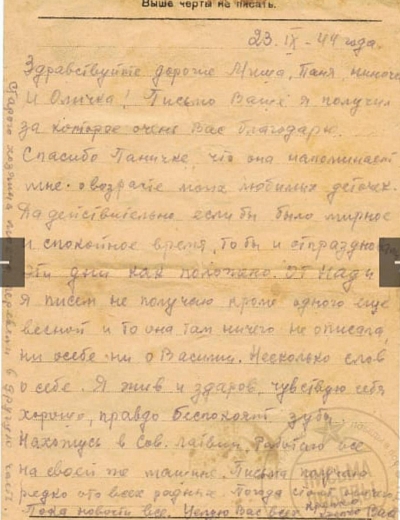 Выше черты не писать.
23.IX-44 года.
Здравствуйте дорогие Миша, Паня,
и Оличка! Письмо Ваше я получил
за которое очень Вас благодарю.
Спасибо Паничке, что она напоминает
мне о возрасте моих любимых деточек.
Да действительно если бы было мирное
и спокойное время, то бы и отпраздно
эти дни как положено. От Нади
я писем не получаю кроме одного еще
весной и то она там ничего не описала,
ни о себе ни о Василии. Несколько слов
о себе. Я жив и здоров, чувствую себя
хорошо, правдо беспокоят зубы
Нахожусь в Сов. Латвии. Работаю все
на своей же машине. Письма получаю
редко ото всех родных. Погода стоит
Пока новости все. Целую Вас всех